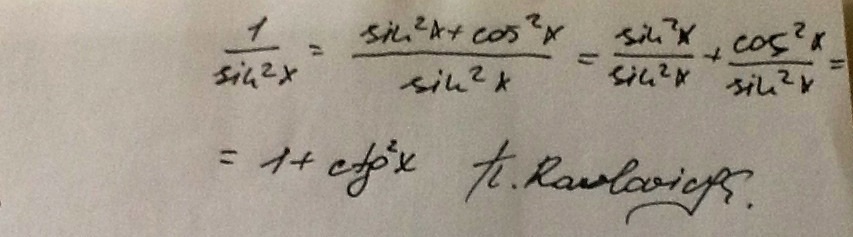 1/sin²x = (sin²x + cos²x)/sin²x = sin²x/sin²x + cos²x/sin²x =
= 1 + ctg²x